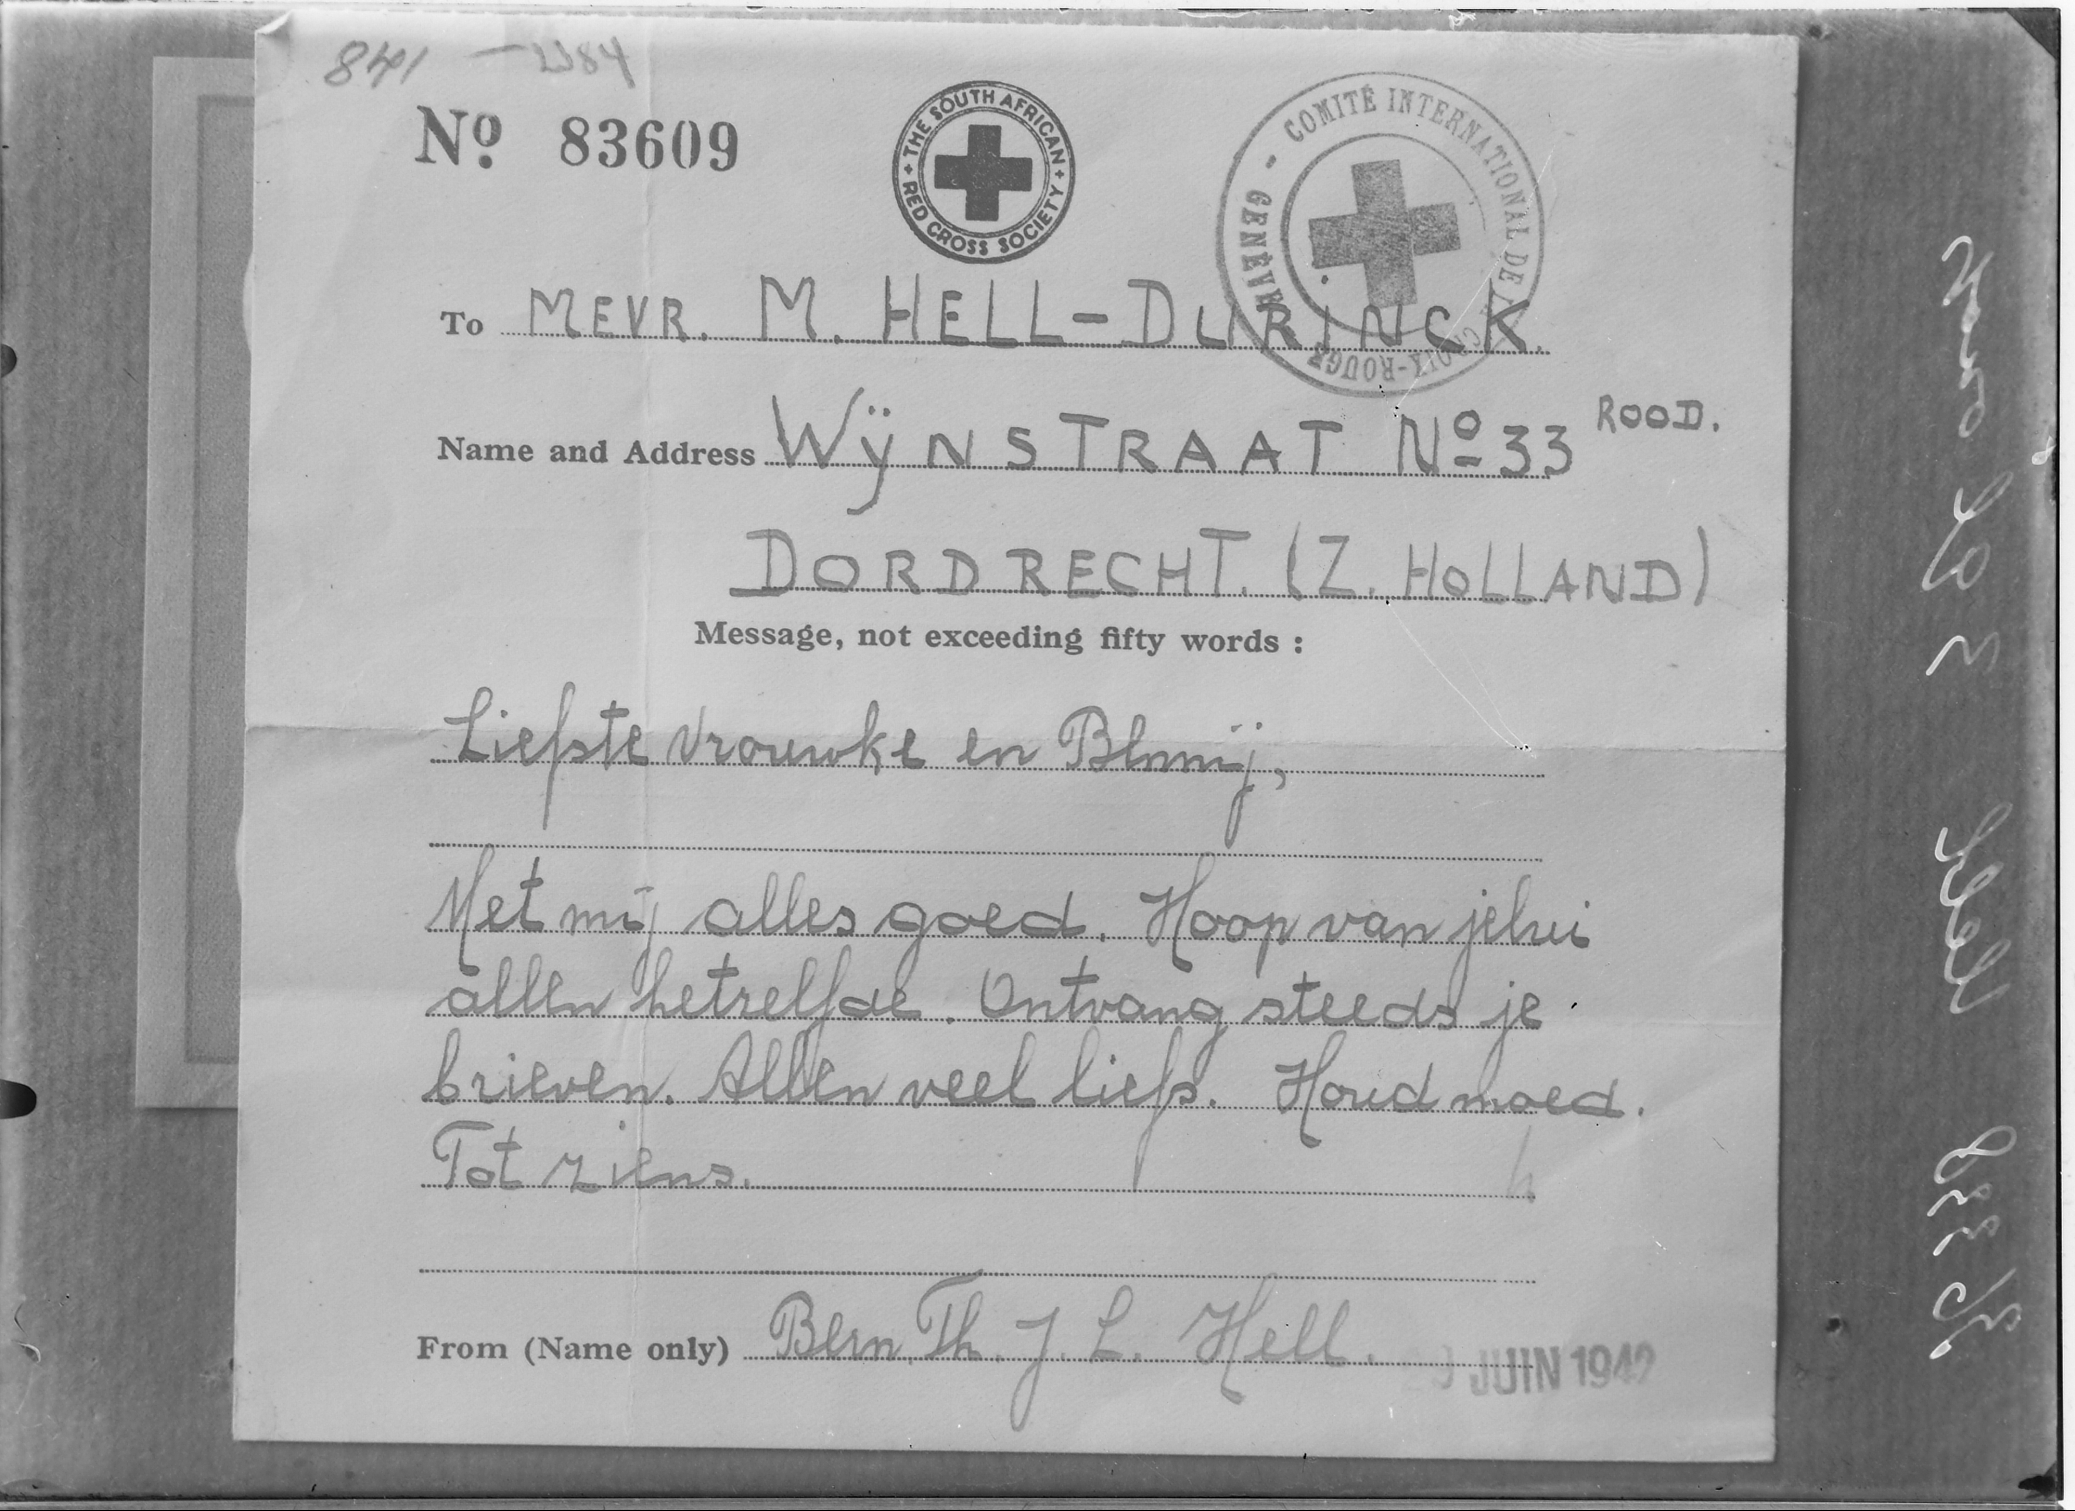 841
No. 83609
THE SOUTH AFRICAN RED CROSS SOCIETY
COMITÉ INTERNATIONAL DE LA CROIX-ROUGE - GENÈVE -
To MEVR. M. HELL-DURINCK.
Name and Address WIJNSTRAAT No 33 ROOD.
DORDRECHT. (Z. HOLLAND)
Message, not exceeding fifty words :
Liefste vrouwke en
Met mij alles goed. Hoop van jelui
allen hetzelfde. Ontvang steeds je
brieven. Allen veel liefs. Houd moed.
Tot ziens.
From (Name only) Bern. Th. J. L. Hell.
JUIN 1942